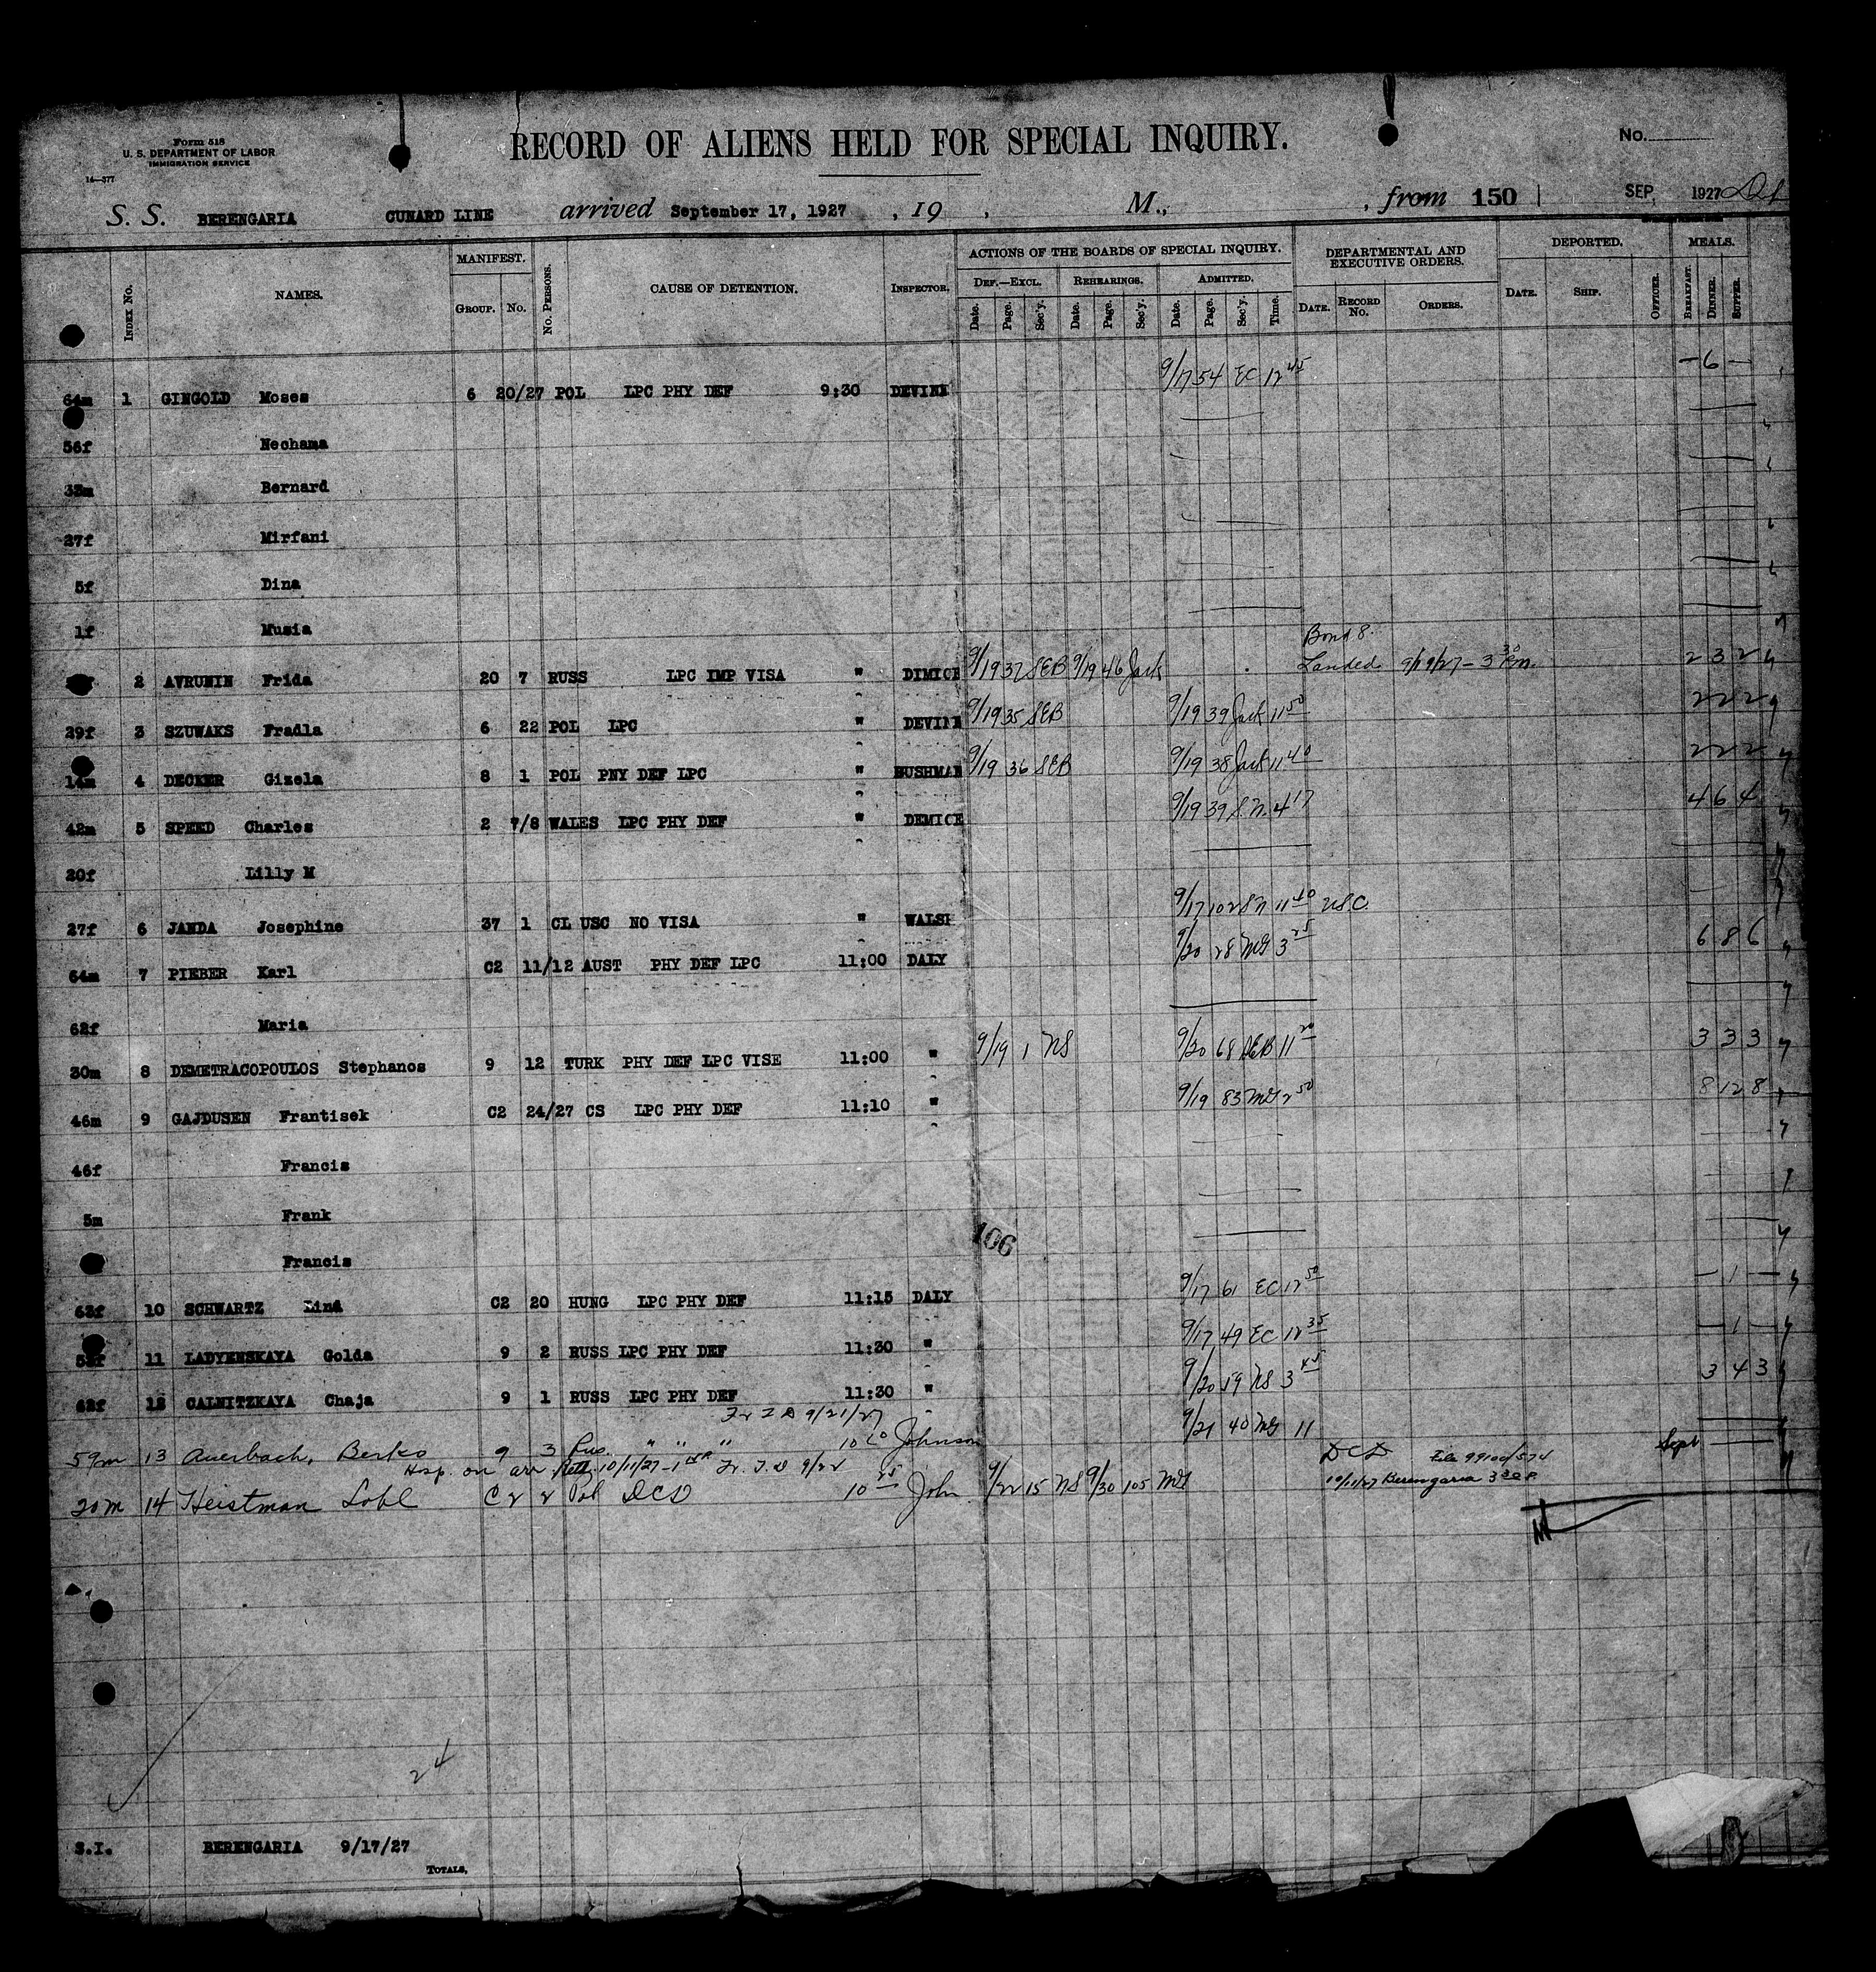 Form 518
U. S. DEPARTMENT OF LABOR
IMMIGRATION SERVICE
14—377
RECORD OF ALIENS HELD FOR SPECIAL INQUIRY.
No.
S. S. BERENGARIA CUNARD LINE arrived September 17, 1927 , 19 , M., , from 150 SEP, 1927
INDEX No. NAMES. MANIFEST. GROUP. No. No. PERSONS. CAUSE OF DETENTION. INSPECTOR. ACTIONS OF THE BOARDS OF SPECIAL INQUIRY. DEF.—EXCL. Date. Page. Sec'y. REHEARINGS. Date. Page. Sec'y. ADMITTED. Date. Page. Sec'y. Time. DEPARTMENTAL AND EXECUTIVE ORDERS. DATE. RECORD No. ORDERS. DEPORTED. DATE. SHIP. OFFICER. MEALS. BREAKFAST. DINNER. SUPPER.
64m 1 GINGOLD Moses 6 20/27 POL LPC PHY DEF 9:30 DEVINE 9/17 54 EC 12 45 — 6 —
56f Nechama
33m Bernard
27f Mirfani
5f Dina
1f Musia
Bond 8.
2 AVRUNIN Frida 20 7 RUSS LPC IMP VISA " DIMICE 9/19 37 SEB 9/19 46 Jack Landed 9/19/27 - 3 30 Pm. 2 3 2
29f 3 SZUWAKS Fradla 6 22 POL LPC " DEVINE 9/19 35 SEB 9/19 39 Jack 11 50 2 2 2
14m 4 DECKER Gizela 8 1 POL PNY DEF LPC " BUSHMAN 9/19 36 SEB 9/19 38 Jack 11 40 2 2 2
42m 5 SPEED Charles 2 7/8 WALES LPC PHY DEF " DEMICE 9/19 39 S.N. 4 17 4 6 4
20f Lilly M
27f 6 JANDA Josephine 37 1 CL USC NO VISA " WALSH 9/17 102 SN 11 40 USC.
64m 7 PIEBER Karl C2 11/12 AUST PHY DEF LPC 11:00 DALY 9/20 28 MG 3 25 6 8 6
62f Maria
30m 8 DEMETRACOPOULOS Stephanos 9 12 TURK PHY DEF LPC VISE 11:00 " 9/19 1 NS 9/20 68 SEB 11 20 3 3 3
46m 9 GAJDUSEN Frantisek C2 24/27 CS LPC PHY DEF 11:10 " 9/19 83 MG 2 50 8 12 8
46f Francis
5m Frank
Francis
106
63f 10 SCHWARTZ Lina C2 20 HUNG LPC PHY DEF 11:15 DALY 9/17 61 EC 12 50 — 1 —
53f 11 LADYENSKAYA Golda 9 2 RUSS LPC PHY DEF 11:30 " 9/17 49 EC 12 35 — 1 —
62f 12 CALNITZKAYA Chaja 9 1 RUSS LPC PHY DEF 11:30 " 9/20 59 NS 3 45 3 4 3
Fr I D 9/21/27
59m 13 Auerbach, Berko 9 3 Rus. " " " 10 20 Johnson 9/21 40 MG 11 Sept
Hosp. on arr. 10/11/27 Fr. I. D 9/22 DCD File 99100/574
20m 14 Heistman Lobl C2 2 Pol DCD 10 25 John 9/22 15 NS 9/30 105 MG 10/11/27 Berengaria 3 30 P.
24
S.I. BERENGARIA 9/17/27
TOTALS,